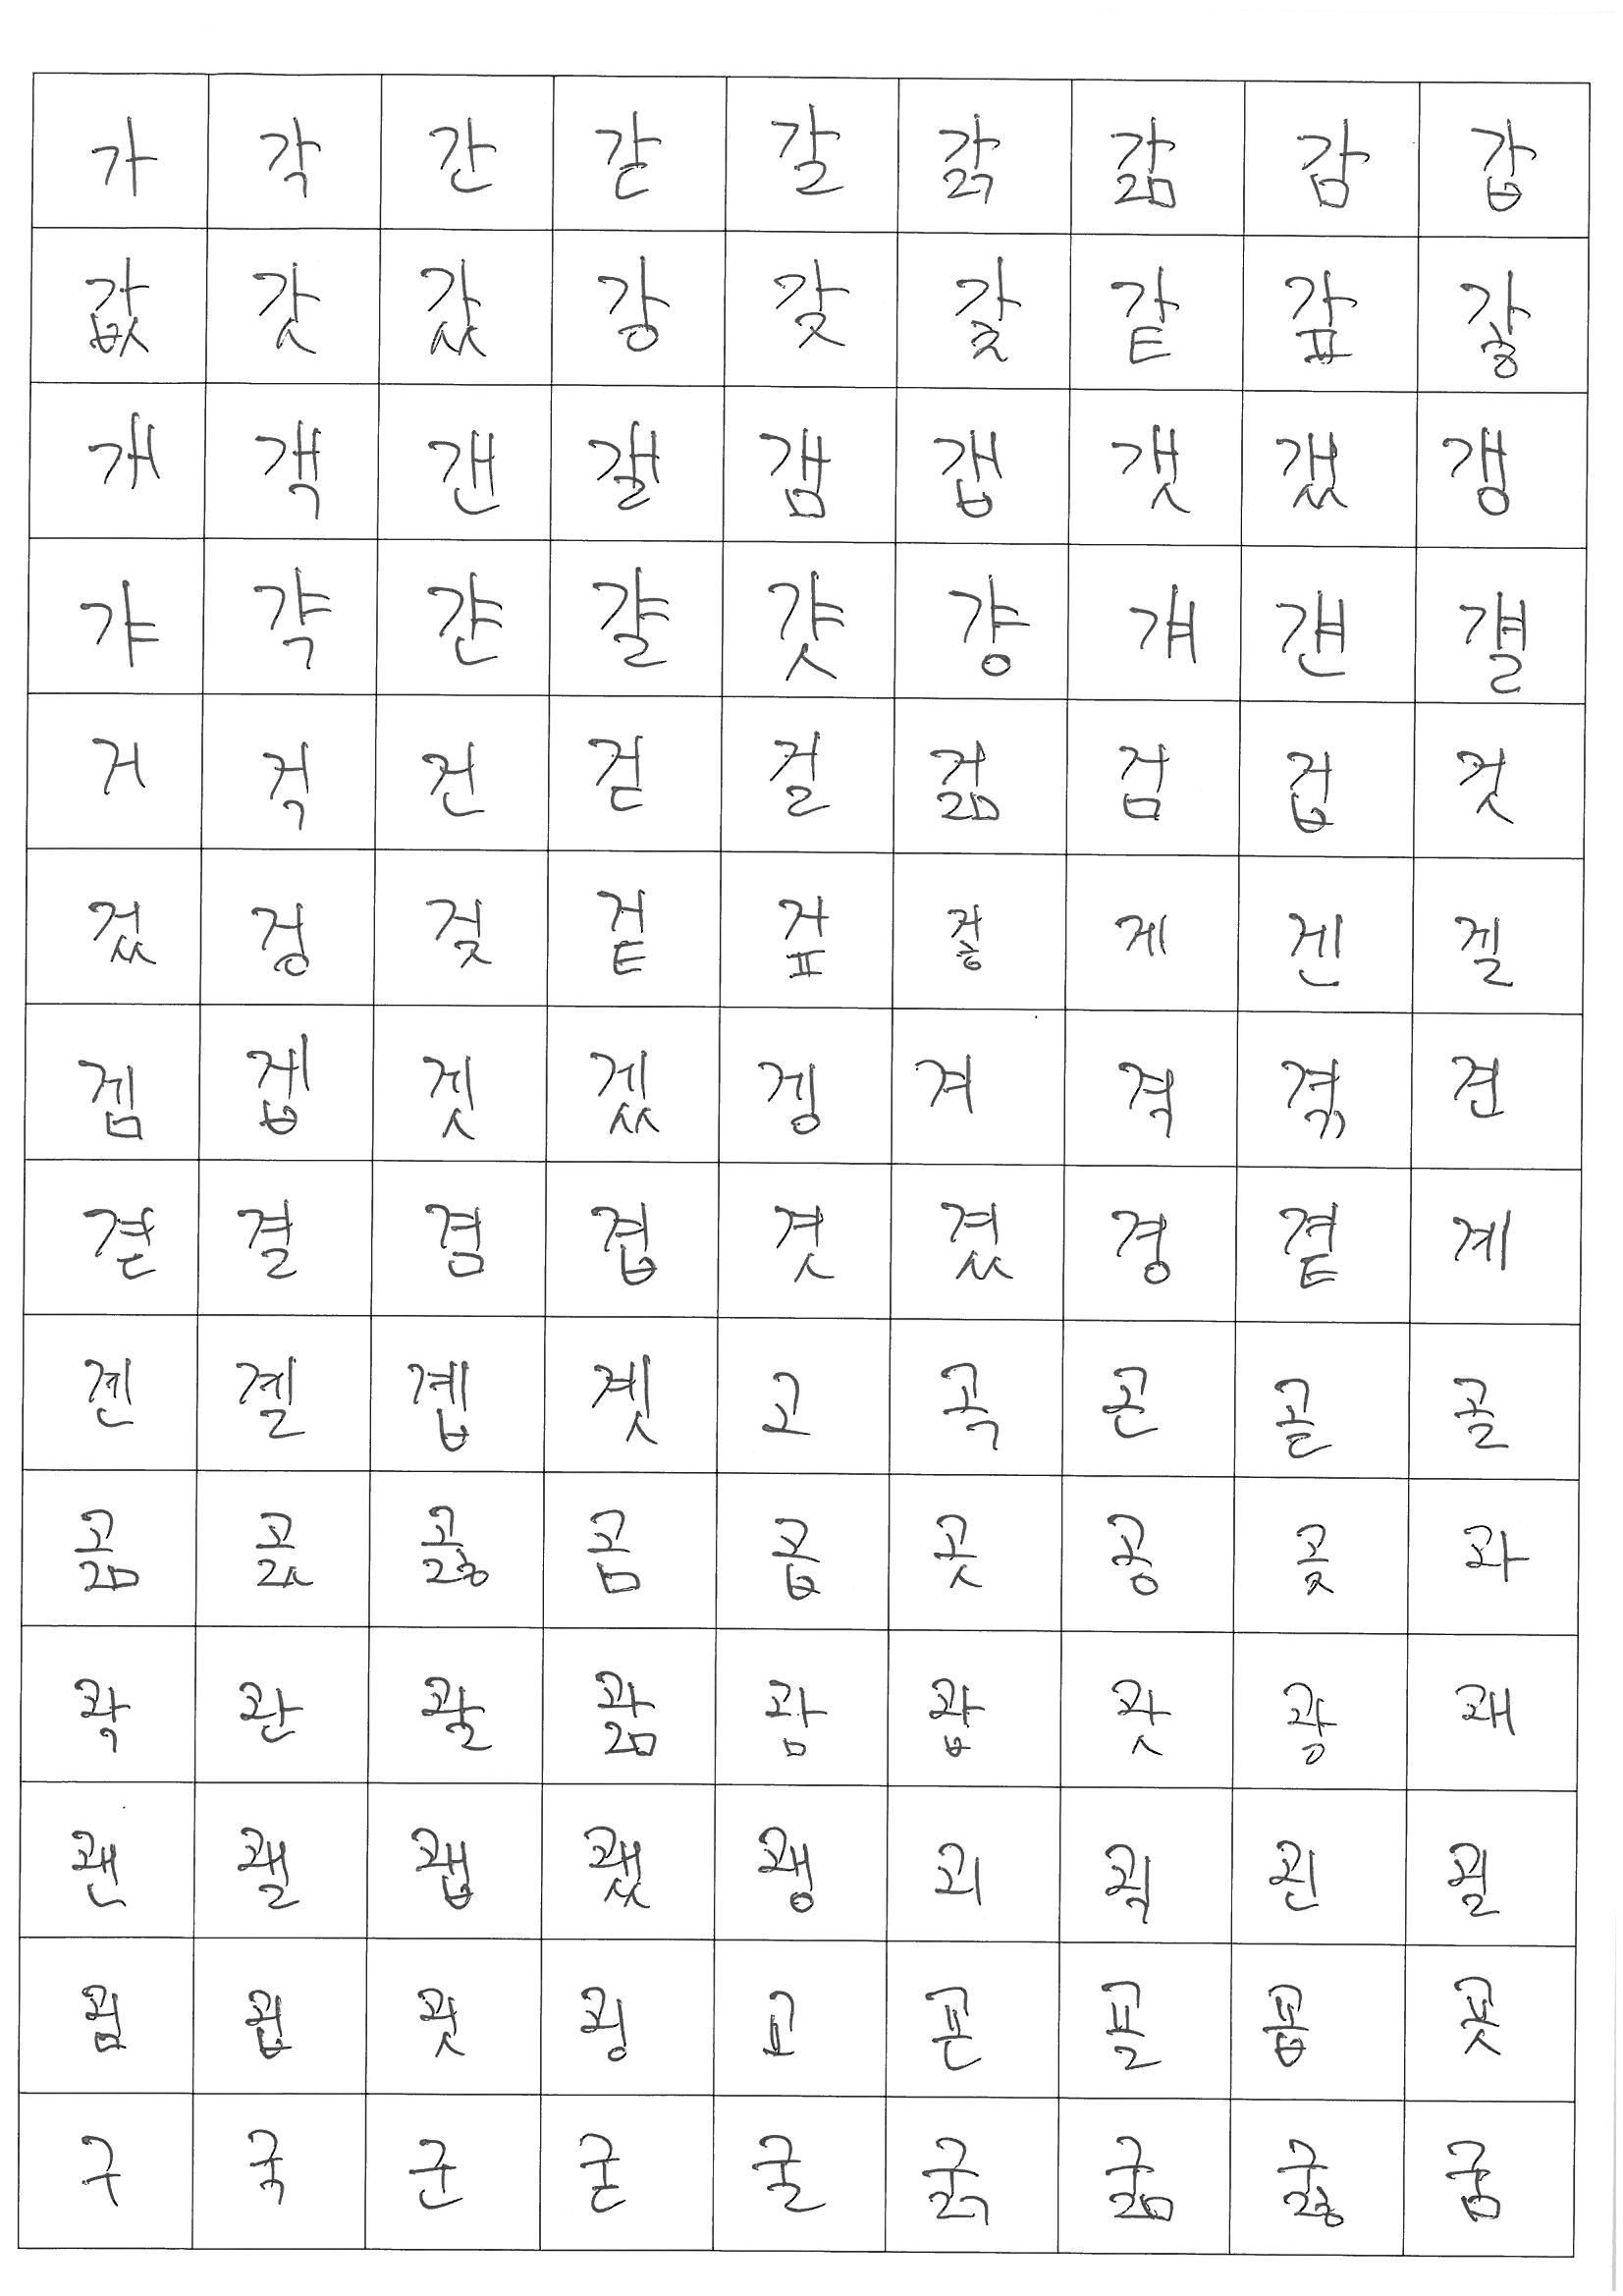 가 각 간 갇 갈 갉 갊 감 갑
값 갓 갔 강 갖 갗 같 갚 갛
개 객 갠 갤 갬 갭 갯 갰 갱
갸 갹 갼 걀 갓 걍 걔 걘 걜
거 걱 건 걷 걸 걺 검 겁 것
겄 겅 겆 겉 갚 갛 게 겐 겔
겜 겝 겟 겠 겡 겨 격 겪 견
겯 결 겸 겹 겻 겼 경 곁 계
곈 곌 곕 곗 고 곡 곤 곧 골
곪 곬 곯 곰 곱 곳 공 곶 과
곽 관 괄 괆 괌 괍 괏 광 괘
괜 괠 괩 괬 괭 괴 괵 괸 괼
굄 굅 굇 굉 교 굔 굘 굡 굣
구 국 군 굳 굴 굵 굶 굻 굼